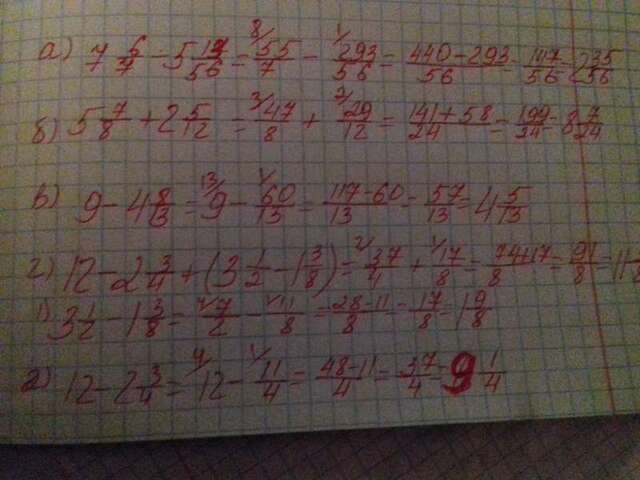 а) 7 6/7 − 5 13/56 = ⁸/55/7 − ¹/293/56 = 440−293/56 = 147/56 = 2 35/56
б) 5 7/8 + 2 5/12 = ³/47/8 + ²/29/12 = 141+58/24 = 199/24 = 8 7/24
в) 9 − 4 8/13 = ¹³/9 − ¹/60/13 = 117−60/13 = 57/13 = 4 5/13
г) 12 − 2 3/4 + (3 1/2 − 1 3/8) = ²/37/4 + ¹/17/8 = 74+17/8 = 91/8 = 11
1) 3 1/2 − 1 3/8 = ⁴/7/2 − ¹/11/8 = 28−11/8 = 17/8 = 1 9/8
2) 12 − 2 3/4 = ⁴/12 − ¹/11/4 = 48−11/4 = 37/4 = 9 1/4